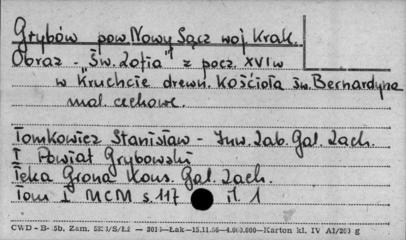 Grybów pow. Nowy Sącz woj Krak.
Obraz - "Św. Zofia" z pocz. XVI w
w kruchcie drewn. Kościoła św. Bernardyna
mal. cechowe.
Tomkowicz Stanisław - Inw. Zab. Gal. Zach.
I Powiat Grybowski
Teka Grona Kons. Gal. Zach.
Tom I MCM s. 117 il. 1
CWD - B- 5b, Zam. - Łak - 15.11.56 - 4.000.000 - Karton kl. IV A1/200 g